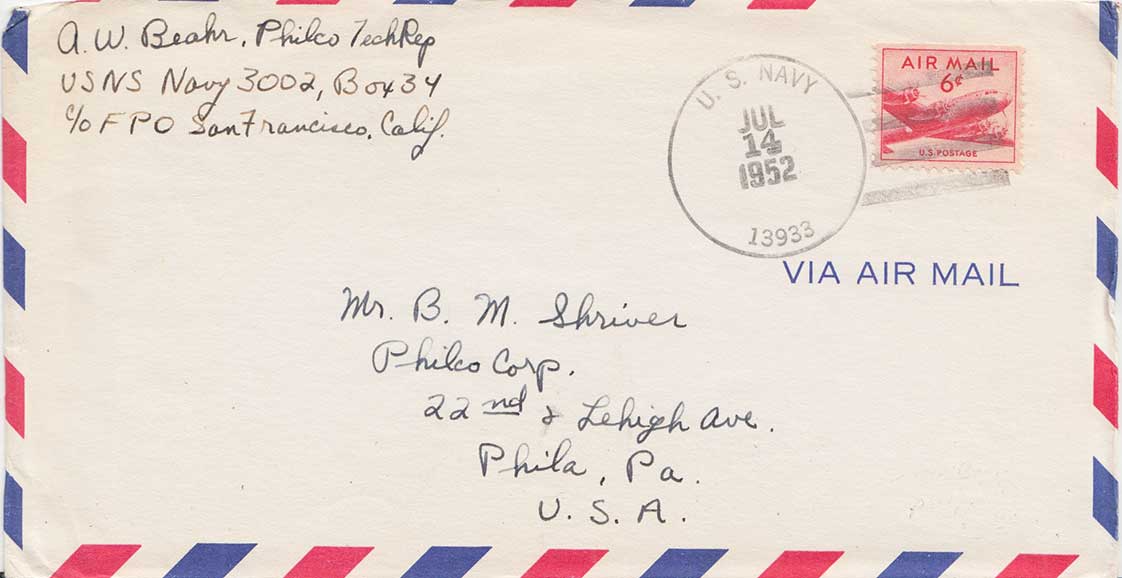 A. W. Beahr, Philco TechRep
USNS Navy 3002, Box 34
c/o F P O San Francisco, Calif.
U. S. NAVY
JUL
14
1952
13933
AIR MAIL
6¢
U.S. POSTAGE
VIA AIR MAIL
Mr. B. M. Shriver
Philco Corp.
22nd & Lehigh Ave.
Phila, Pa.
U. S. A.